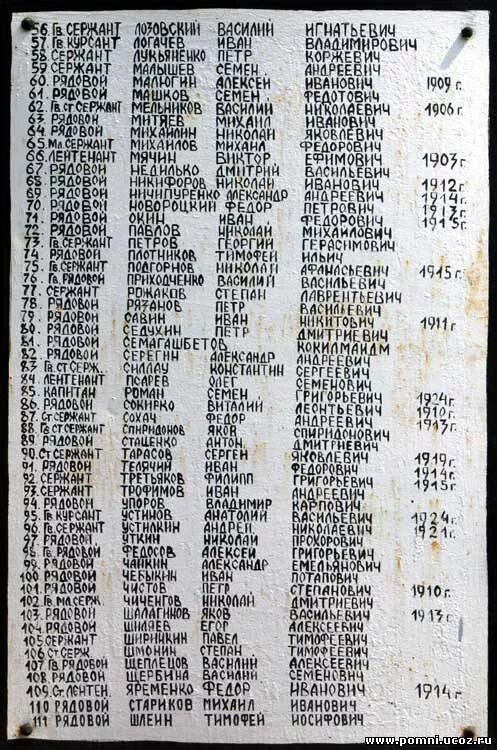 56. Гв. СЕРЖАНТ ЛОЗОВСКИЙ ВАСИЛИЙ ИГНАТЬЕВИЧ
57. Гв. КУРСАНТ ЛОГАЧЕВ ИВАН ВЛАДИМИРОВИЧ
58. СЕРЖАНТ ЛУКЬЯНЕНКО ПЕТР КОРЖЕВИЧ
59. СЕРЖАНТ МАЛЫШЕВ СЕМЕН АНДРЕЕВИЧ
60. РЯДОВОЙ МАЛЮГИН АЛЕКСЕЙ ИВАНОВИЧ 1909 г.
61. РЯДОВОЙ МАШКОВ СЕМЕН ФЕДОТОВИЧ
62. Гв. СТ СЕРЖАНТ МЕЛЬНИКОВ ВАСИЛИЙ НИКОЛАЕВИЧ 1906 г.
63. РЯДОВОЙ МИТЯЕВ МИХАИЛ ИВАНОВИЧ
64. РЯДОВОЙ МИХАЙЛИН НИКОЛАЙ ЯКОВЛЕВИЧ
65. Мл. СЕРЖАНТ МИХАЙЛОВ МИХАИЛ ФЕДОРОВИЧ
66. ЛЕЙТЕНАНТ МЯЧИН ВИКТОР ЕФИМОВИЧ 1903 г.
67. РЯДОВОЙ НЕДИЛЬКО ДМИТРИЙ ВАСИЛЬЕВИЧ
68. РЯДОВОЙ НИКИФОРОВ НИКОЛАЙ ИВАНОВИЧ 1912 г.
69. РЯДОВОЙ НИЧИПУРЕНКО АЛЕКСАНДР АНДРЕЕВИЧ 1914 г.
70. РЯДОВОЙ НОВОРОЦКИЙ ФЕДОР ПЕТРОВИЧ 1913 г.
71. РЯДОВОЙ ОКИН ИВАН ФЕДОРОВИЧ 1915 г.
72. РЯДОВОЙ ПАВЛОВ НИКОЛАЙ МИХАЙЛОВИЧ
73. Гв. СЕРЖАНТ ПЕТРОВ ГЕОРГИЙ ГЕРАСИМОВИЧ
74. РЯДОВОЙ ПЛОТНИКОВ ТИМОФЕЙ ИЛЬИЧ
75. Гв. СЕРЖАНТ ПОДГОРНОВ НИКОЛАЙ АФАНАСЬЕВИЧ 1915 г.
76. Гв. РЯДОВОЙ ПРИХОДЧЕНКО ВАСИЛИЙ ВАСИЛЬЕВИЧ
77. СЕРЖАНТ РОЖАКОВ СТЕПАН ЛАВРЕНТЬЕВИЧ
78. РЯДОВОЙ РЯЗАНОВ ПЕТР ВАСИЛЬЕВИЧ
79. РЯДОВОЙ САВИН ИВАН НИКИТОВИЧ 1911 г.
80. РЯДОВОЙ СЕДУХИН ПЕТР ДМИТРИЕВИЧ
81. РЯДОВОЙ СЕМАГАШБЕТОВ КОКИЛМАИДМ
82. РЯДОВОЙ СЕРЕГИН АЛЕКСАНДР АНДРЕЕВИЧ
83 Гв. СТ СЕРЖ. СИЛЛАУ КОНСТАНТИН СЕРГЕЕВИЧ
84. ЛЕЙТЕНАНТ ПСАРЕВ ОЛЕГ СЕМЕНОВИЧ
85. КАПИТАН РОМАН СЕМЕН ГРИГОРЬЕВИЧ 1924 г.
86. РЯДОВОЙ СОКИРКО ВИТАЛИЙ ЛЕОНТЬЕВИЧ 1910 г.
87. СТ СЕРЖАНТ СОХАЧ ФЕДОР АНДРЕЕВИЧ 1913 г.
88. Гв. СТ СЕРЖАНТ СПИРИДОНОВ ЯКОВ СПИРИДОНОВИЧ
89. РЯДОВОЙ СТАЦЕНКО АНТОН ДМИТРИЕВИЧ
90. СТ СЕРЖАНТ ТАРАСОВ СЕРГЕЙ ЯКОВЛЕВИЧ 1919 г.
91. РЯДОВОЙ ТЕЛЯЧИЙ ИВАН ФЕДОРОВИЧ 1914 г.
92. СЕРЖАНТ ТРЕТЬЯКОВ ФИЛИПП ГРИГОРЬЕВИЧ 1915 г.
93. СЕРЖАНТ ТРОФИМОВ ИВАН АНДРЕЕВИЧ
94. РЯДОВОЙ УПОРОВ ВЛАДИМИР КАРПОВИЧ
95. Гв КУРСАНТ УСТИНОВ АНАТОЛИЙ ВАСИЛЬЕВИЧ 1924 г.
96. Гв. СЕРЖАНТ УСТИЛКИН АНДРЕЙ НИКОЛАЕВИЧ 1921 г.
97. РЯДОВОЙ УТКИН НИКОЛАЙ ПРОХОРОВИЧ
98. Гв. РЯДОВОЙ ФЕДОСОВ АЛЕКСЕЙ ГРИГОРЬЕВИЧ
99. РЯДОВОЙ ЧАЙКИН АЛЕКСАНДР ЕМЕЛЬЯНОВИЧ
100. РЯДОВОЙ ЧЕБЫКИН ИВАН ПОТАПОВИЧ
101. РЯДОВОЙ ЧИСТОВ ПЕТР СТЕПАНОВИЧ 1910 г.
102. Гв МЛ. СЕРЖ. ЧИЧЕНГОВ НИКОЛАЙ ДМИТРИЕВИЧ
103. РЯДОВОЙ ШАЛАГИНОВ ЯКОВ ВАСИЛЬЕВИЧ 1913 г.
104. РЯДОВОЙ ШИЛЯЕВ ЕГОР АЛЕКСЕЕВИЧ
105 СЕРЖАНТ ШИРИНКИН ПАВЕЛ ТИМОФЕЕВИЧ
106 СТ СЕРЖ. ШМОНИН СТЕПАН ТИМОФЕЕВИЧ
107 Гв. РЯДОВОЙ ЩЕПЛЕЦОВ ВАСИЛИЙ АЛЕКСЕЕВИЧ
108. РЯДОВОЙ ЩЕРБИНА ВАСИЛИЙ СЕМЕНОВИЧ
109. СТ. ЛЕЙТЕН. ЯРЕМЕНКО ФЕДОР ИВАНОВИЧ 1914 г.
110 РЯДОВОЙ СТАРИКОВ МИХАИЛ ИВАНОВИЧ
111 РЯДОВОЙ ШЛЕИН ТИМОФЕЙ ИОСИФОВИЧ
www.pomni.ucoz.ru